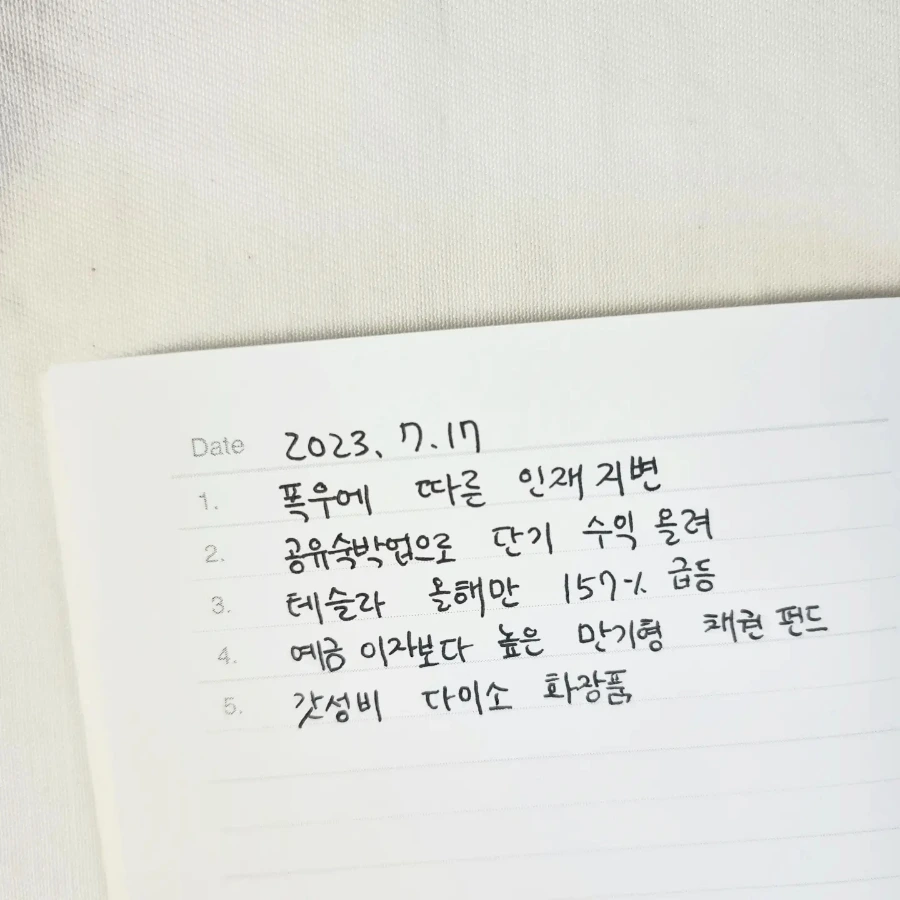 Date 2023. 7.17
1. 폭우에 따른 인재지변
2. 공유숙박업으로 단기 수익 올려
3. 테슬라 올해만 157% 급등
4. 예금 이자보다 높은 만기형 채권 펀드
5. 갓성비 다이소 화장품